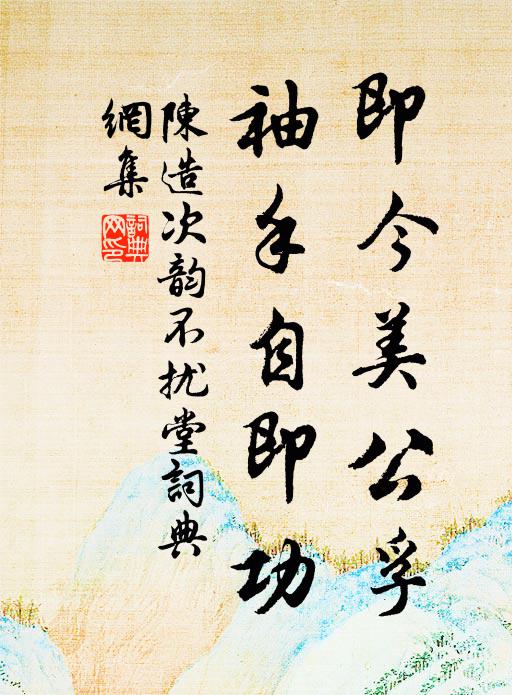 即今美公孚
袖手自即功
陳造次韵不扰堂詞典
網集
詞典網印